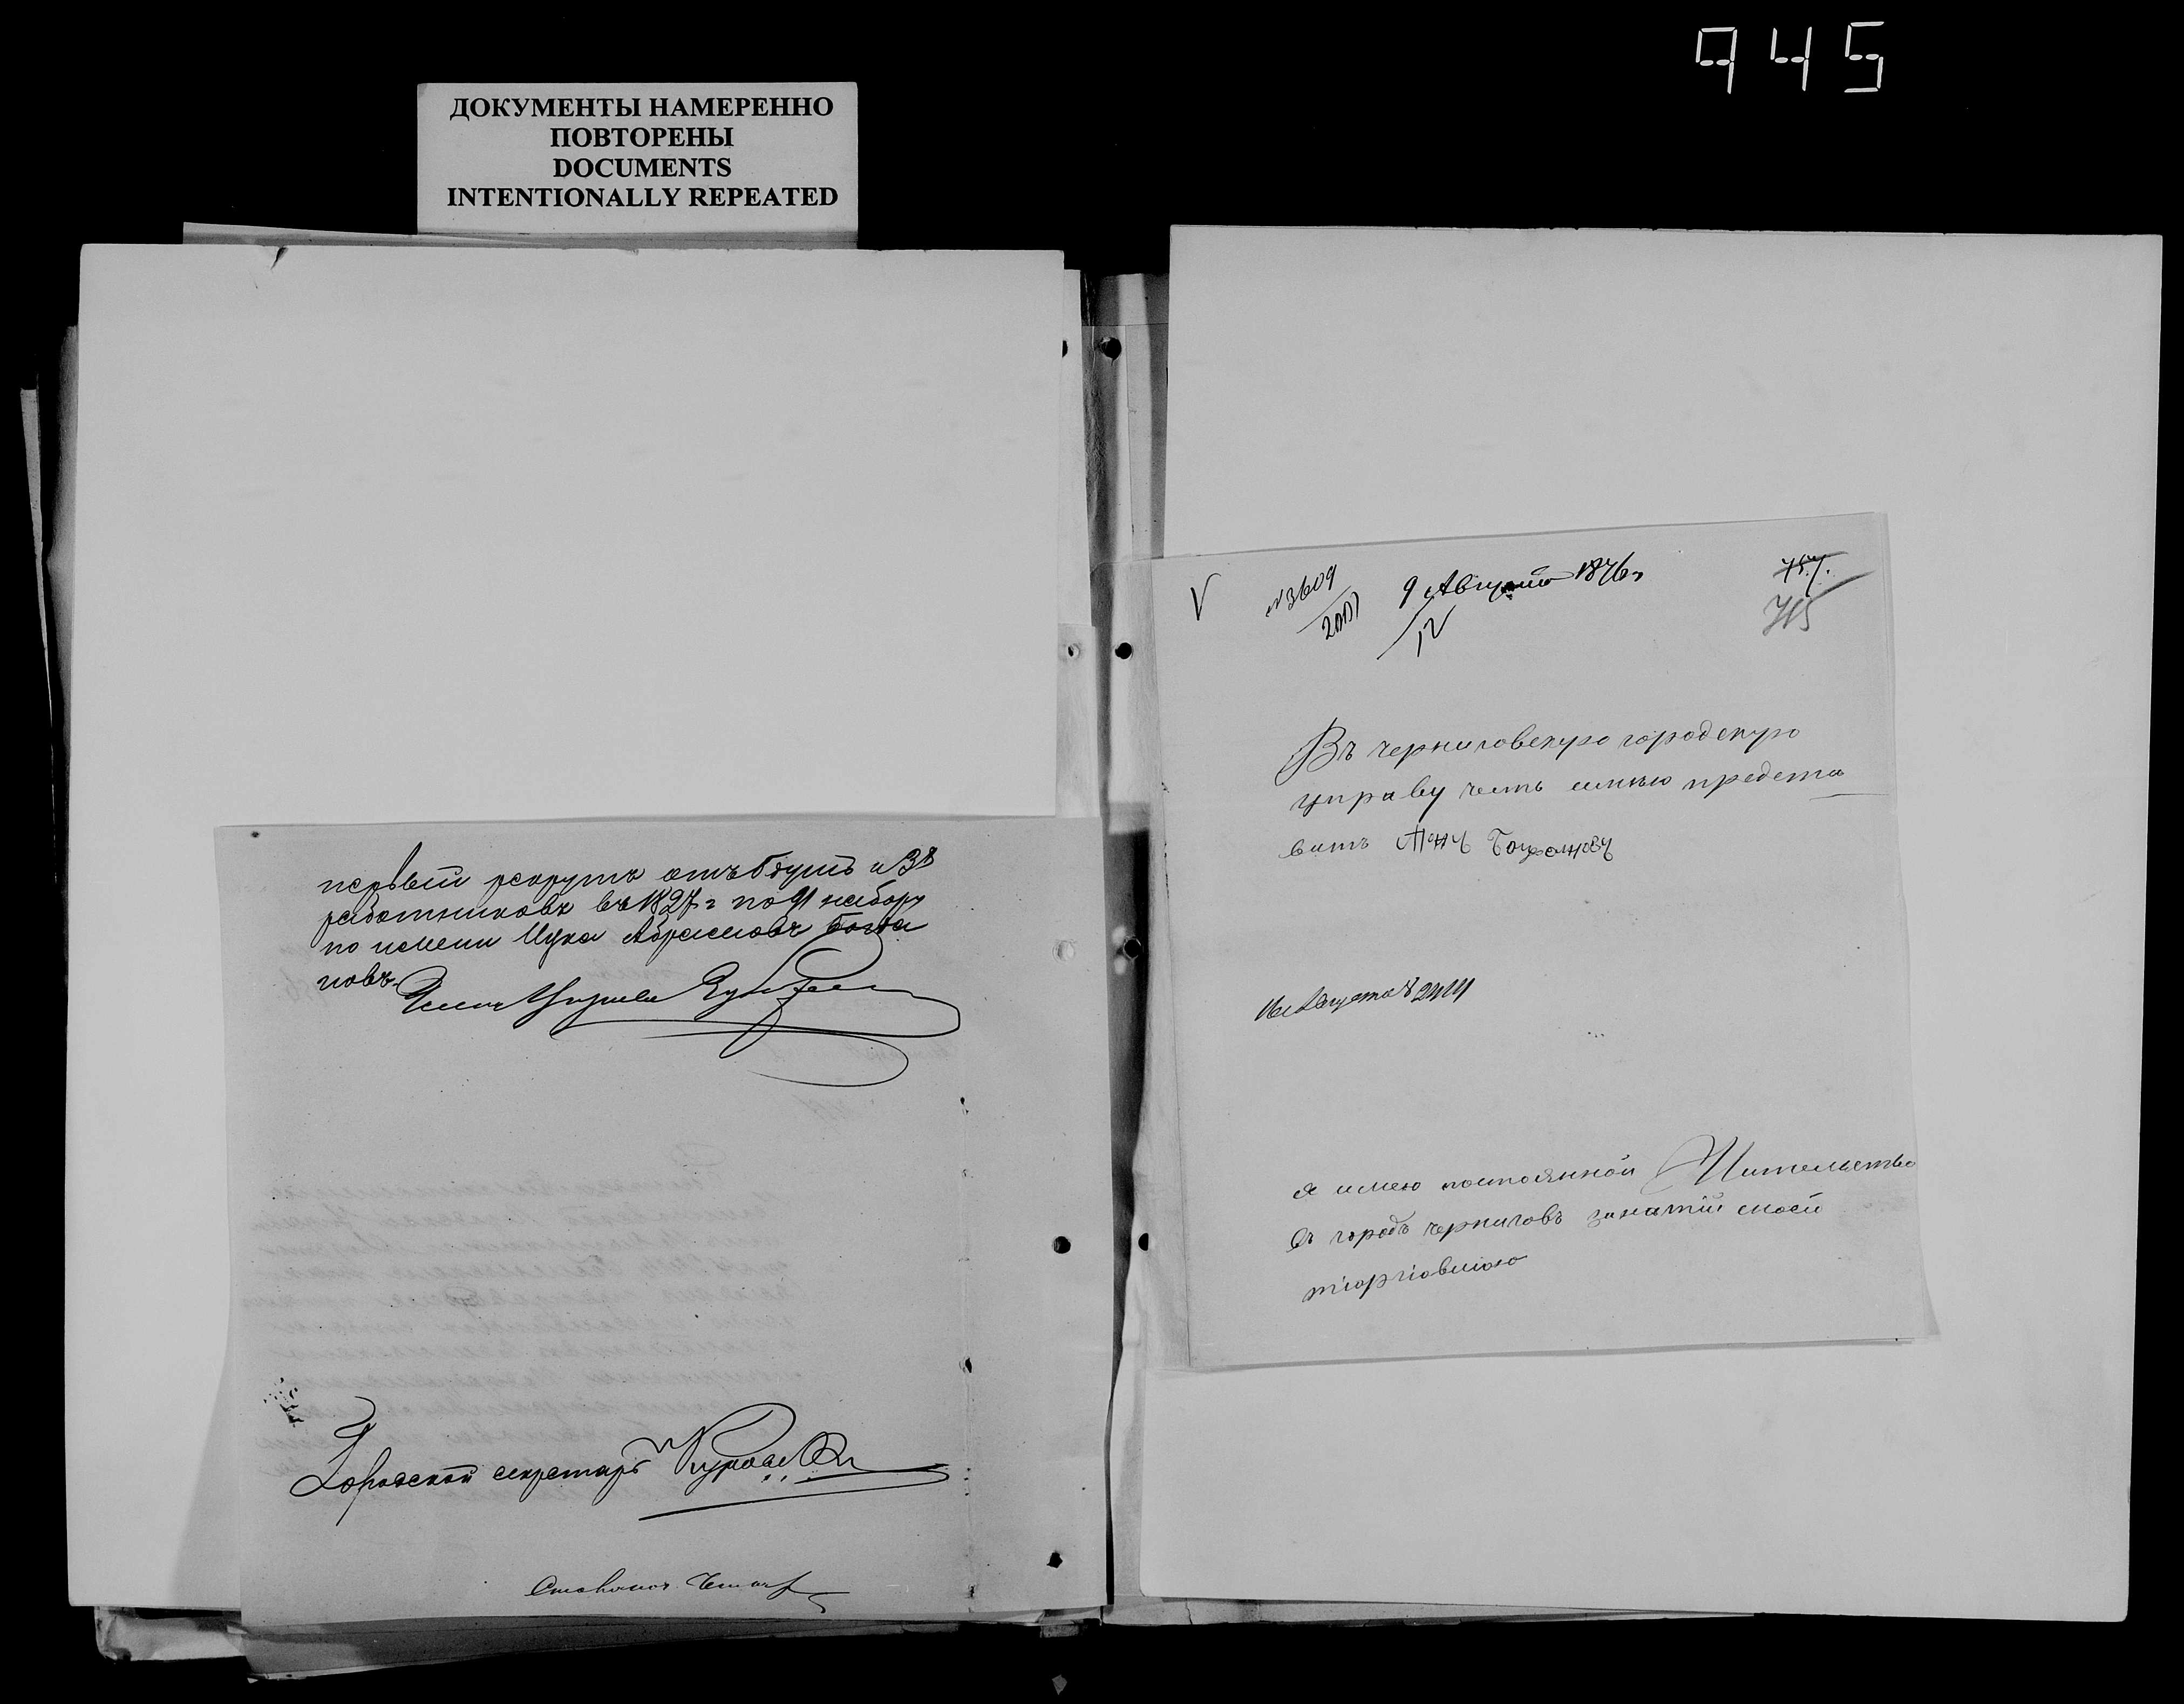 945
ДОКУМЕНТЫ НАМЕРЕННО
ПОВТОРЕНЫ
DOCUMENTS
INTENTIONALLY REPEATED
первый рекрутъ отъ будутъ изъ 38
работниковъ въ 1827 г по 91 набору
по имени Ицка Абрамовъ Богда
новъ.
Членъ Управы
Городской секретарь
№3609
9 Августа 1876 г
12
757.
715
Въ черниговскую городскую
управу честь имѣю предста
вить
Августа
я имею постоянной Жительство
въ городѣ черниговѣ занятіи моей
торговлею